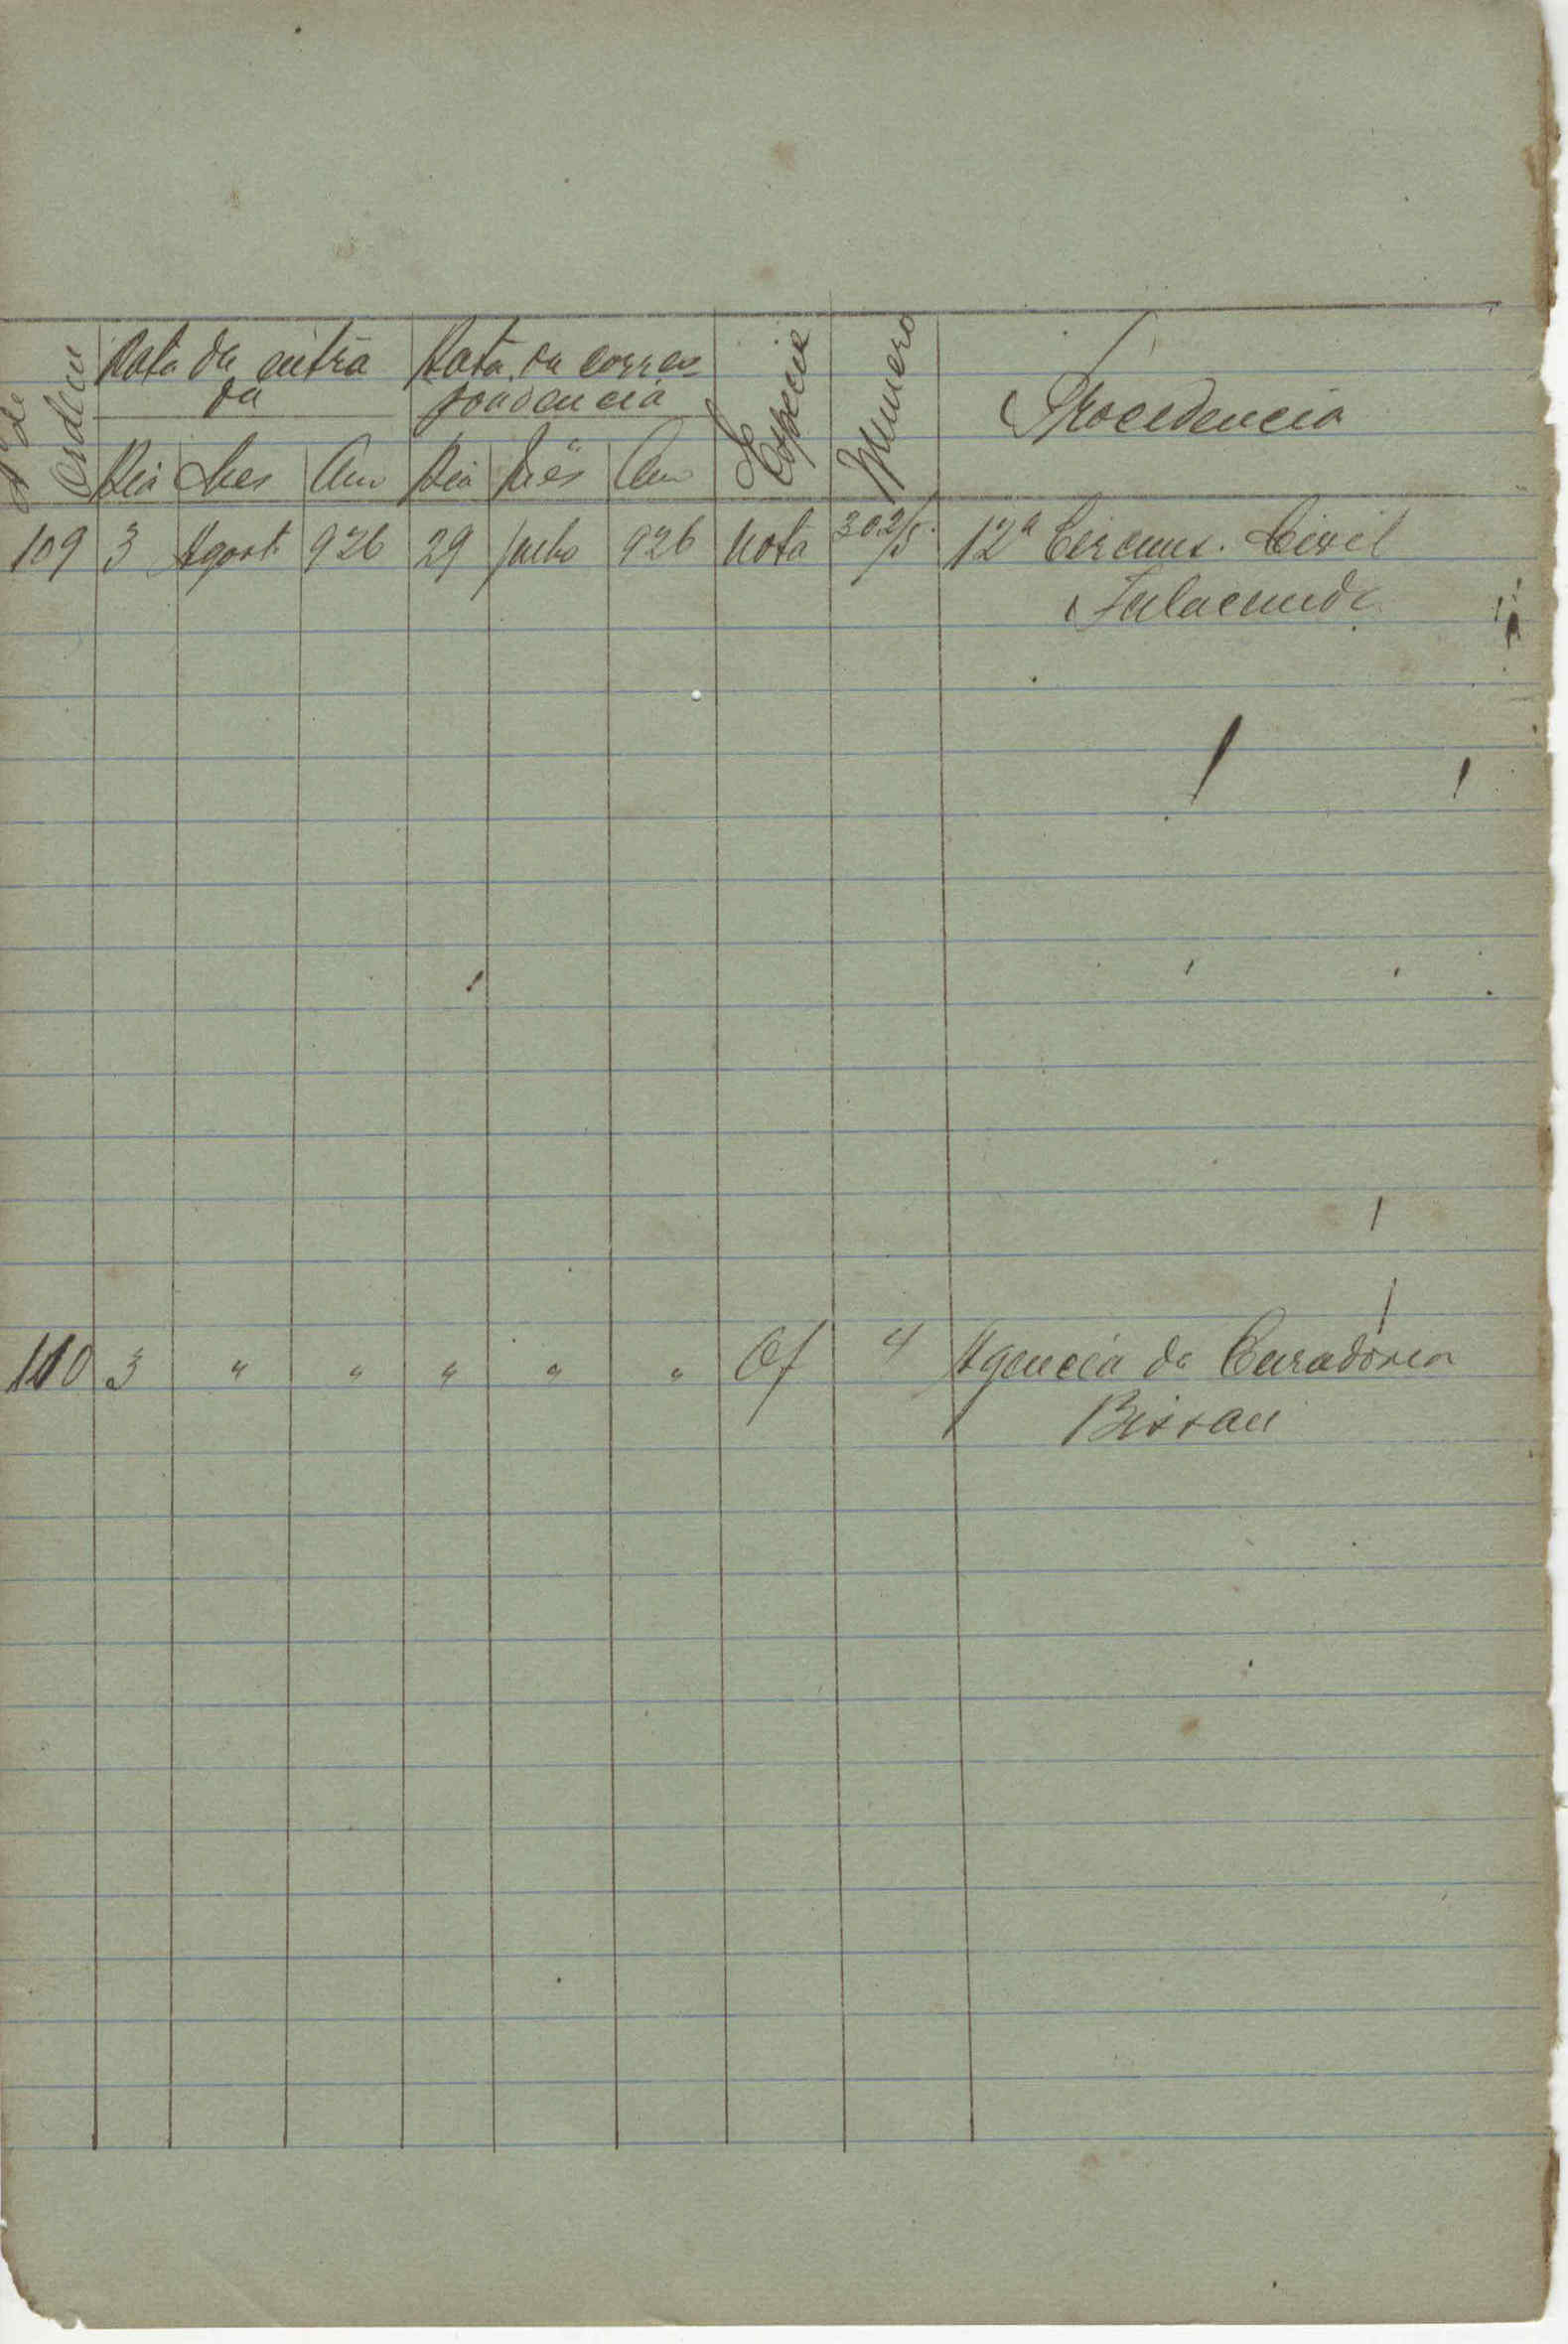 Nº de ordem
Data da entra
da
Data da corres
pondencia
Especie
Numero
Procedencia
Dia Mes Ano Dia Mês Ano
109 3 Agost. 926 29 Julho 926 Nota 302/5. 12ª Circuns. Civil
Fulacunda
110 3 " " " " " Of 4 Agencia da Curadoria
Bissau